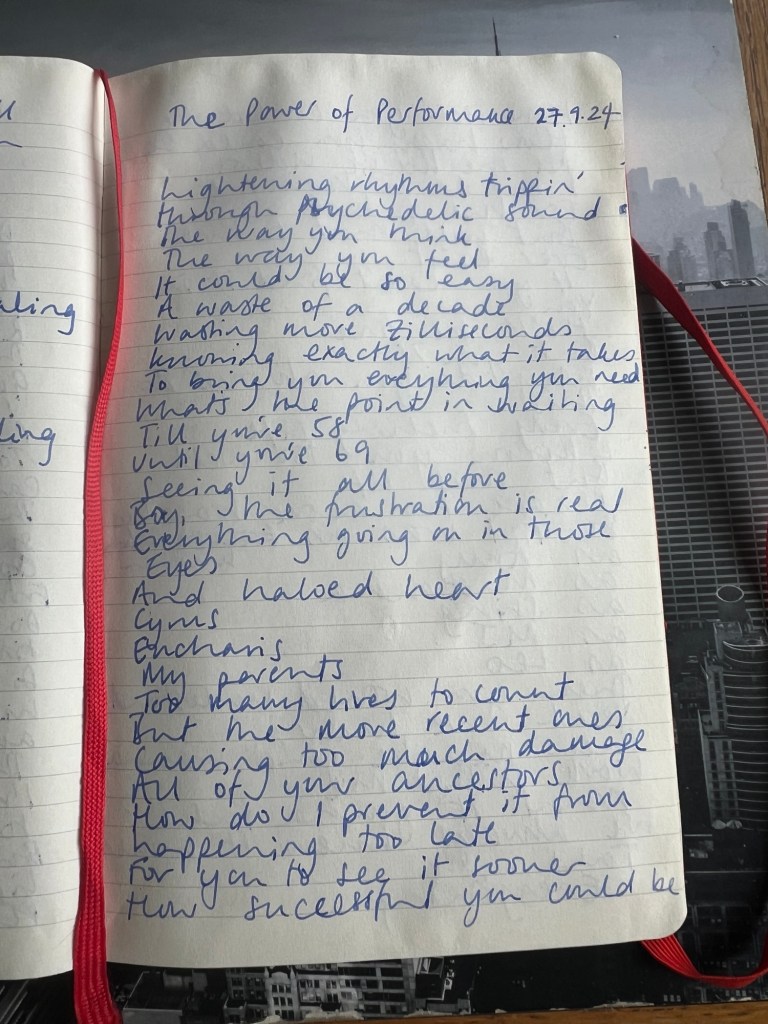 ll
aling
ling
The Power of Performance 27.9.24
Lightening rhythms trippin'
through psychedelic sound
The way you think
The way you feel
It could be so easy
A waste of a decade
Wasting more zilliseconds
Knowing exactly what it takes
To bring you everything you need
What's the point in waiting
Till you're 58
Until you're 69
Seeing it all before
Boy, the frustration is real
Everything going on in those
Eyes
And haloed heart
Cyrus
Encharis
My parents
Too many lives to count
But the more recent ones
Causing too much damage
All of your ancestors
How do I prevent it from
happening too late
For you to see it sooner
How successful you could be